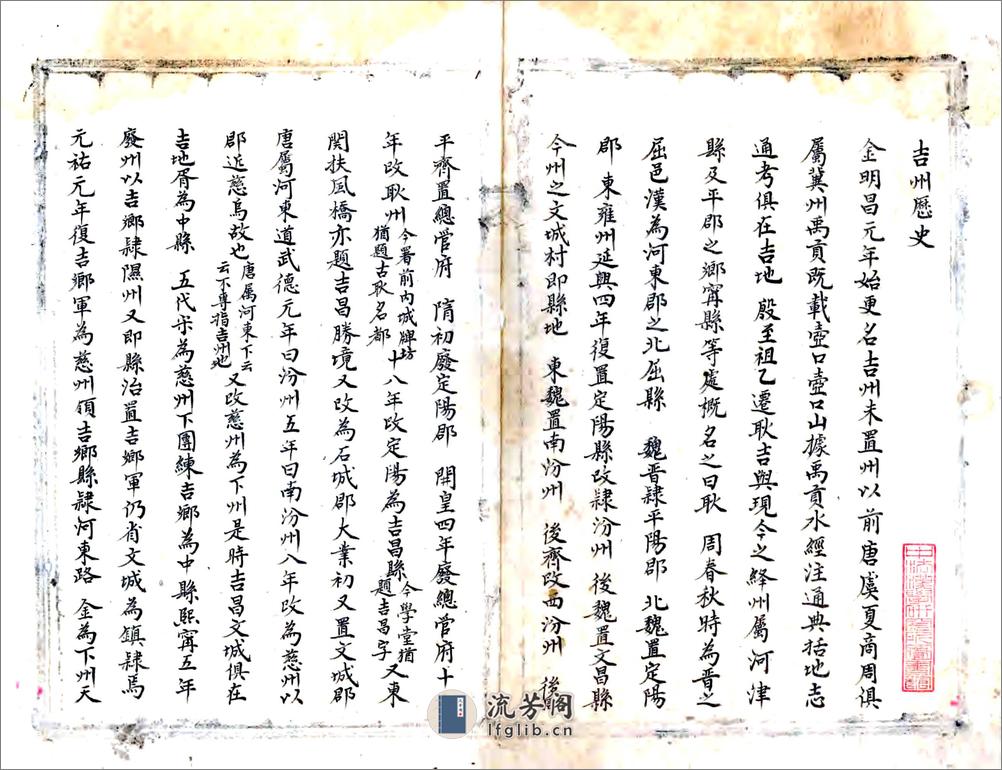 吉州歷史
金明昌元年始更名吉州未置州以前唐虞夏商周俱
屬冀州禹貢既載壺口壺口山據禹貢水經注通典括地志
通考俱在吉地 殷至祖乙遷耿吉與現今之絳州屬河津
縣及平郡之鄉甯縣等處概名之曰耿 周春秋時為晉之
屈邑漢為河東郡之北屈縣 魏晉隸平陽郡 北魏置定陽
郡 東雍州延興四年復置定陽縣改隸汾州 後魏置文昌縣
今州之文城村即縣地 東魏置南汾州 後齊改西汾州 後周
平齊置總管府 隋初廢定陽郡 開皇四年廢總管府十
年改耿州今署前內城牌坊猶題古耿名都十八年改定陽為吉昌縣今學堂猶題吉昌字又東
関扶風橋亦題吉昌勝境又改為石城郡大業初又置文城郡
唐屬河東道武德元年曰汾州五年曰南汾州八年改為慈州以
郡近慈烏故也唐属河東下云云不專指吉州也又改慈州為下州是時吉昌文城俱在
吉地胥為中縣 五代宋為慈州下團練吉鄉為中縣熙甯五年
廢州以吉鄉隸隰州又即縣治置吉鄉軍仍省文城為鎮隸焉
元祐元年復吉鄉軍為慈州領吉鄉縣隸河東路 金為下州天
流芳阁
lfglib.cn